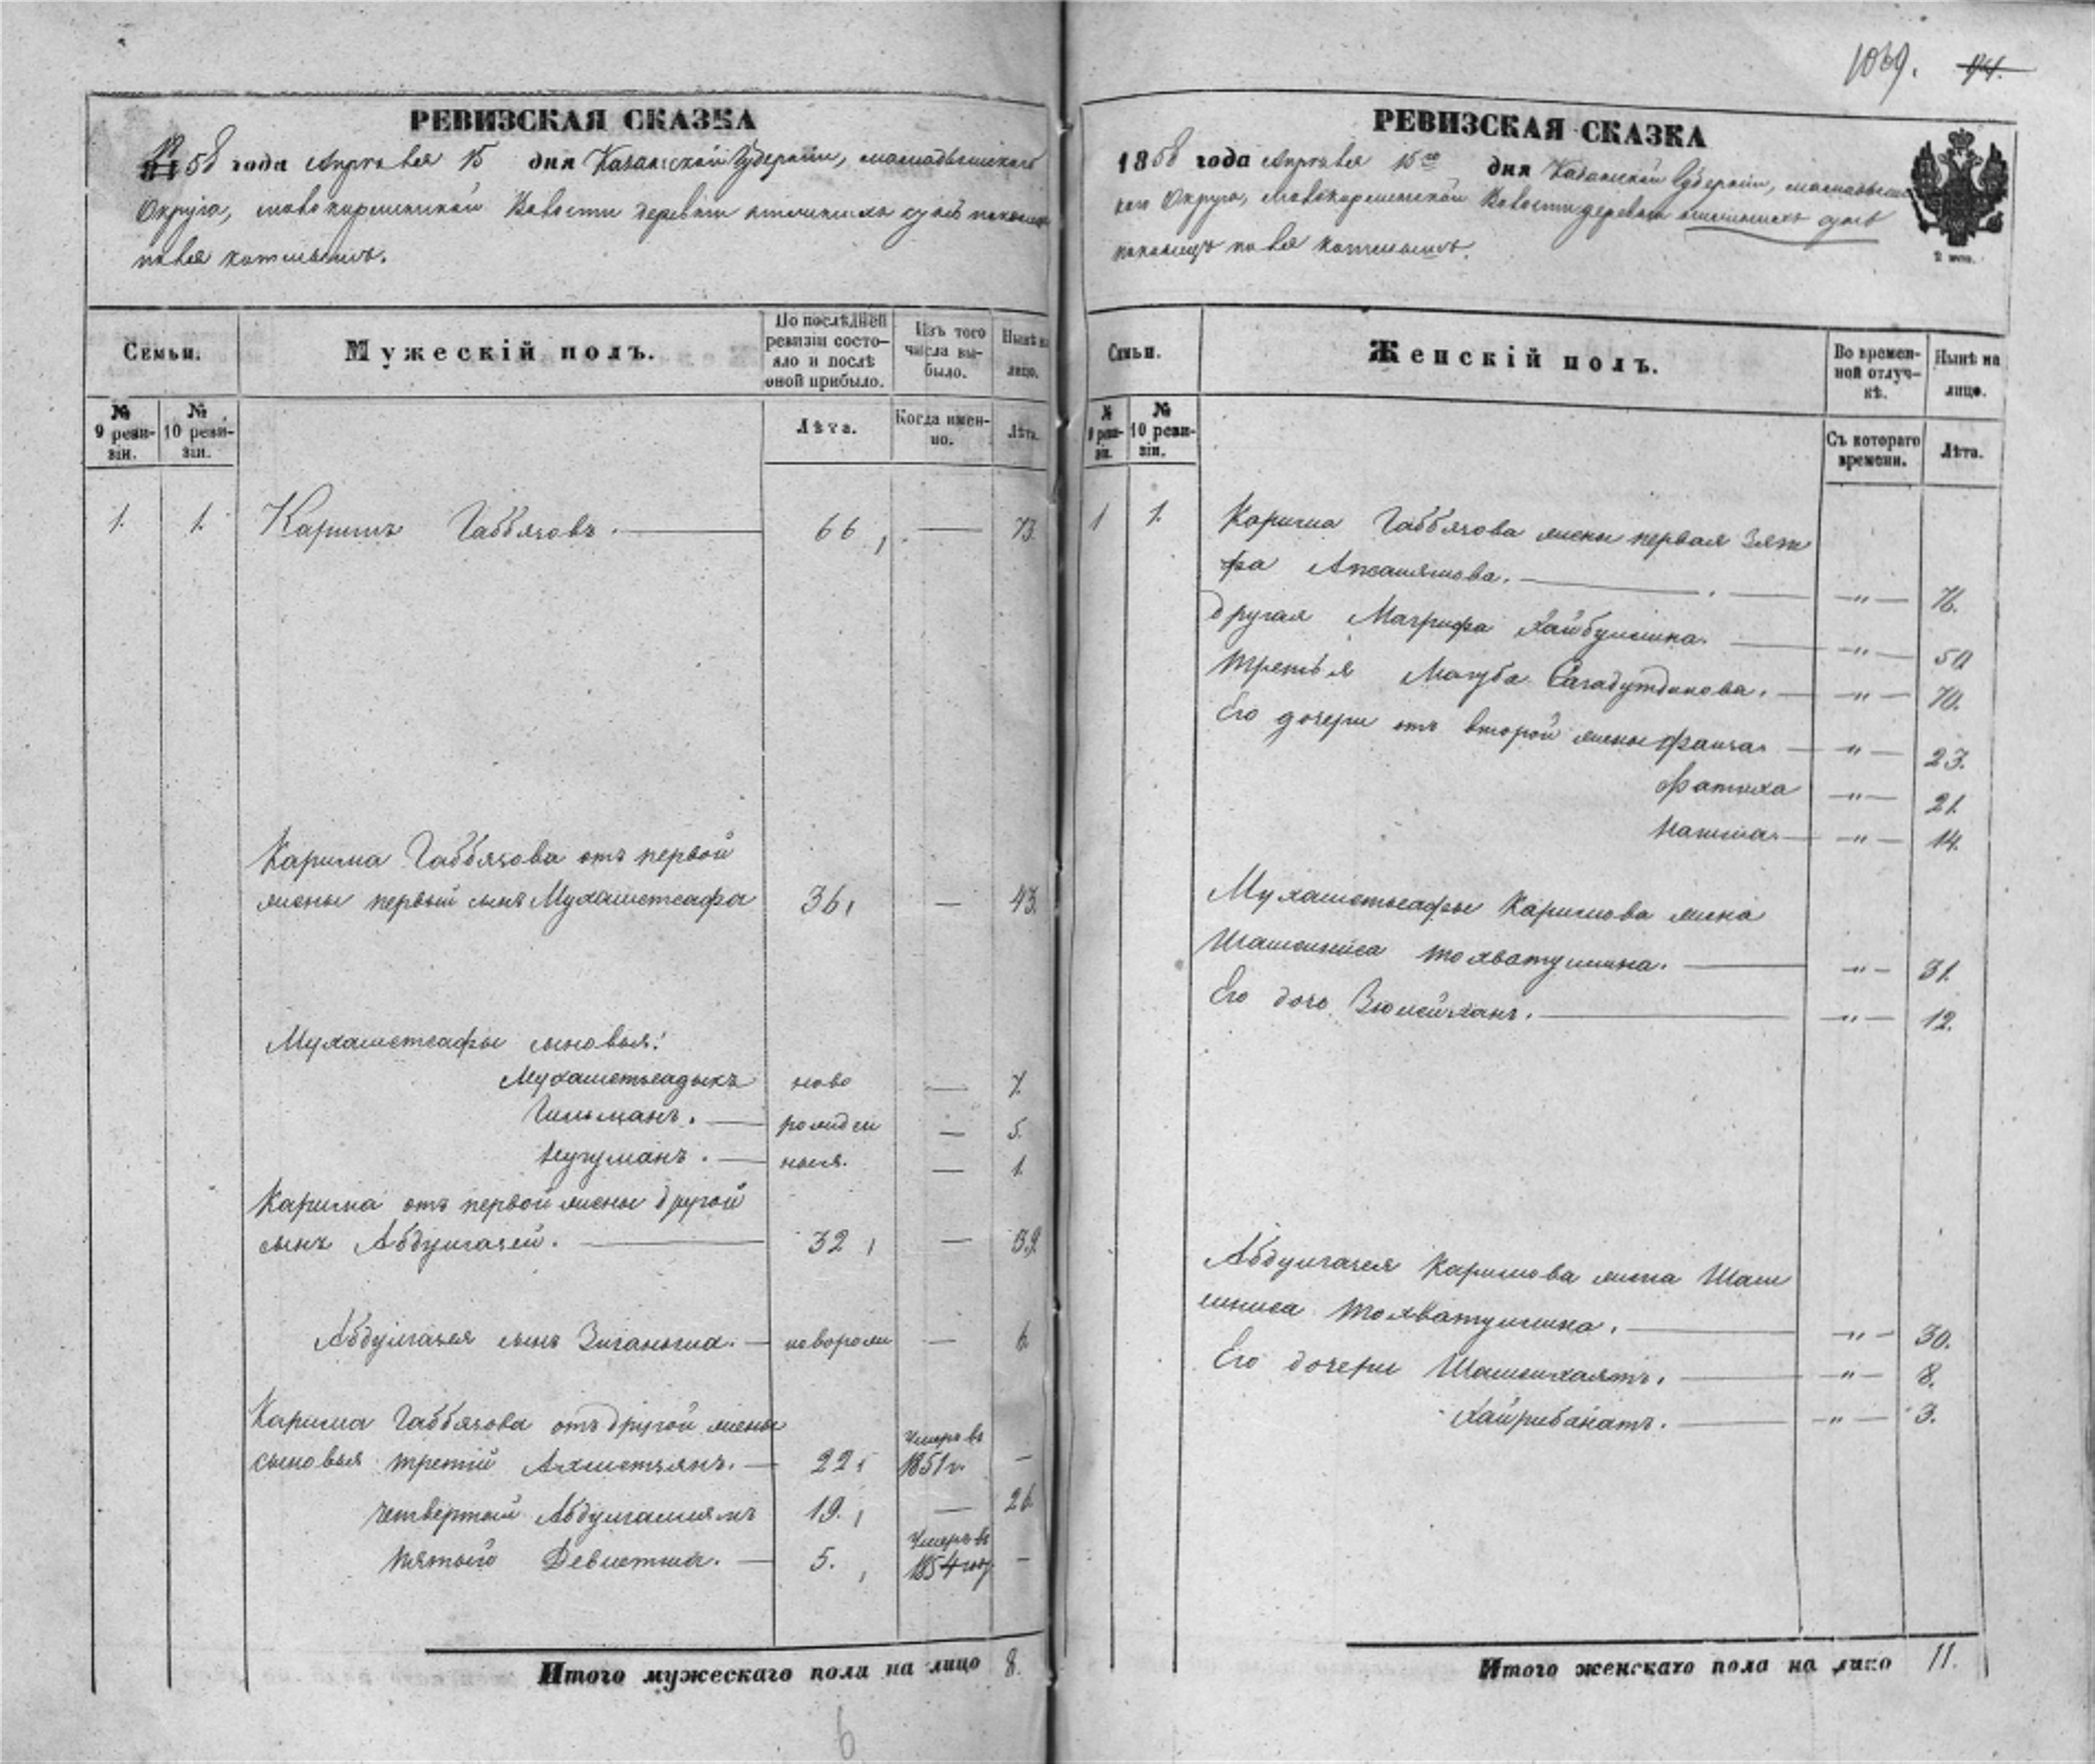 1069. 94.
РЕВИЗСКАЯ СКАЗКА
1858 года Апреля 15 дня Казанской Губернии, мамадышскаго
Округа, Волости деревни
РЕВИЗСКАЯ СКАЗКА
1858 года Апреля 15го дня Казанской Губернии,
Округа, Волости деревни
2 коп.
Семьи. Мужескій полъ. По послѣдней ревизіи состояло и послѣ оной прибыло. Изъ того числа выбыло. Нынѣ на лицо.
№ 9 ревизіи. № 10 ревизіи. Лѣта. Когда именно. Лѣта.
1. 1. Каримъ Габбясовъ. 66 — 73.
Карима Габбясова отъ первой
жены первый сынъ Мухаметсафа 36 — 43.
Мухаметсафы сыновья:
Мухаметьсадыкъ ново — 7.
Гильманъ. рожден — 5.
Нугуманъ. ные. — 1.
Карима отъ первой жены другой
сынъ Абдулгазей. 32 — 39.
Абдулгазея сынъ Зиганша. новорож — 6.
Карима Габбясова отъ другой жены
сыновья третій Ахметзянъ. 22 Умеръ въ 1851 г. —
четвертый 19. — 26.
пятый Девлетша. 5. Умеръ въ 1854 году —
Итого мужескаго пола на лицо 8.
6
Семьи. Женскій полъ. Во временной отлучкѣ. Нынѣ на лицо.
№ 9 ревизіи. № 10 ревизіи. Съ котораго времени. Лѣта.
1 1. Карима Габбясова жены первая Зяй
фа — " — 76.
другая Магрифа Хайбуллина. — " — 50
третья Магуба Сагадутдинова. — " — 70.
Его дочери отъ второй жены Фаиза — " — 23.
Фатиха — " — 21.
— " — 14.
Мухаметьсафы Каримова жена
Шамсиниса Тохватуллина. — " — 31.
Его дочь — " — 12.
Абдулгазея Каримова жена Шам
синиса Тохватуллина. — " — 30.
Его дочери — " — 8.
Хайрибанатъ. — " — 3.
Итого женскаго пола на лицо 11.